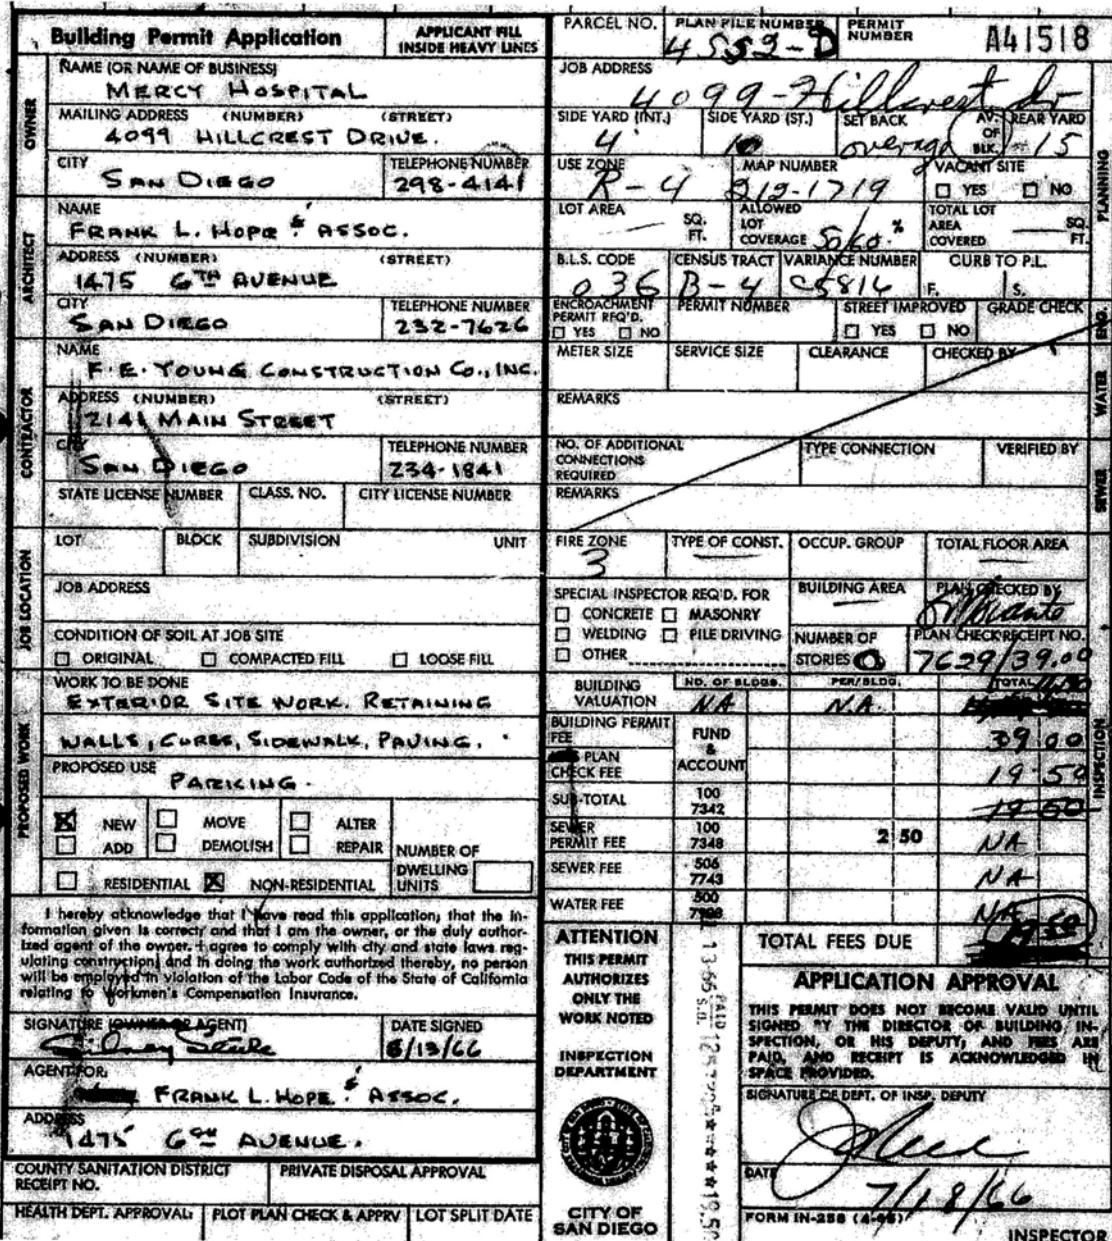 Building Permit Application
APPLICANT FILL
INSIDE HEAVY LINES
OWNER
NAME (OR NAME OF BUSINESS)
MERCY HOSPITAL
MAILING ADDRESS (NUMBER) (STREET)
4099 HILLCREST DRIVE.
CITY
SAN DIEGO
TELEPHONE NUMBER
298-4141
ARCHITECT
NAME
FRANK L. HOPE & ASSOC.
ADDRESS (NUMBER) (STREET)
1475 6TH AVENUE
CITY
SAN DIEGO
TELEPHONE NUMBER
232-7626
CONTRACTOR
NAME
F. E. YOUNG CONSTRUCTION CO., INC.
ADDRESS (NUMBER) (STREET)
2141 MAIN STREET
CITY
SAN DIEGO
TELEPHONE NUMBER
234-1841
STATE LICENSE NUMBER CLASS. NO. CITY LICENSE NUMBER
JOB LOCATION
LOT BLOCK SUBDIVISION UNIT
JOB ADDRESS
CONDITION OF SOIL AT JOB SITE
ORIGINAL COMPACTED FILL LOOSE FILL
PROPOSED WORK
WORK TO BE DONE
EXTERIOR SITE WORK. RETAINING
WALLS, CURBS, SIDEWALK, PAVING.
PROPOSED USE
PARKING.
NEW MOVE ALTER
ADD DEMOLISH REPAIR
NUMBER OF
DWELLING
UNITS
RESIDENTIAL NON-RESIDENTIAL
I hereby acknowledge that I have read this application; that the in-
formation given is correct; and that I am the owner, or the duly author-
ized agent of the owner. I agree to comply with city and state laws reg-
ulating construction; and in doing the work authorized thereby, no person
will be employed in violation of the Labor Code of the State of California
relating to Workmen's Compensation Insurance.
SIGNATURE (OWNER OR AGENT)
DATE SIGNED
6/13/66
AGENT FOR:
FRANK L. HOPE & ASSOC.
ADDRESS
1475 6TH AVENUE.
COUNTY SANITATION DISTRICT
RECEIPT NO.
PRIVATE DISPOSAL APPROVAL
HEALTH DEPT. APPROVAL: PLOT PLAN CHECK & APPRV LOT SPLIT DATE
PARCEL NO.
PLAN FILE NUMBER
4552-D
PERMIT
NUMBER
A41518
JOB ADDRESS
4099-Hillcrest dr
PLANNING
SIDE YARD (INT.)
4'
SIDE YARD (ST.)
10
SET BACK
average
AV.
OF
BLK.
REAR YARD
15
USE ZONE
R-4
MAP NUMBER
212-1719
VACANT SITE
YES NO
LOT AREA
SQ.
FT.
ALLOWED
LOT
COVERAGE
%
TOTAL LOT
AREA
COVERED
SQ.
FT.
B.L.S. CODE
036
CENSUS TRACT
B-4
VARIANCE NUMBER
C5816
CURB TO P.L.
F. S.
ENG.
ENCROACHMENT
PERMIT REQ'D.
YES NO
PERMIT NUMBER
STREET IMPROVED
YES NO
GRADE CHECK
WATER
METER SIZE SERVICE SIZE CLEARANCE CHECKED BY
REMARKS
SEWER
NO. OF ADDITIONAL
CONNECTIONS
REQUIRED
TYPE CONNECTION
VERIFIED BY
REMARKS
FIRE ZONE
3
TYPE OF CONST.
OCCUP. GROUP
TOTAL FLOOR AREA
SPECIAL INSPECTOR REQ'D. FOR
CONCRETE MASONRY
WELDING PILE DRIVING
OTHER
BUILDING AREA
PLAN CHECKED BY
NUMBER OF
STORIES 0
PLAN CHECK RECEIPT NO.
7629/39.00
INSPECTION
BUILDING
VALUATION
NO. OF BLDGS.
NA
PER/BLDG.
N.A.
TOTAL
BUILDING PERMIT
FEE
FUND
&
ACCOUNT
39 00
PLAN
CHECK FEE
19 50
SUB-TOTAL
100
7342
19 50
SEWER
PERMIT FEE
100
7348
2 50
NA
SEWER FEE
506
7743
NA
WATER FEE
500
NA
TOTAL FEES DUE
19 50
ATTENTION
THIS PERMIT
AUTHORIZES
ONLY THE
WORK NOTED
INSPECTION
DEPARTMENT
CITY OF
SAN DIEGO
APPLICATION APPROVAL
THIS PERMIT DOES NOT BECOME VALID UNTIL
SIGNED BY THE DIRECTOR OF BUILDING IN-
SPECTION, OR HIS DEPUTY; AND FEES ARE
PAID, AND RECEIPT IS ACKNOWLEDGED IN
SPACE PROVIDED.
SIGNATURE OF DEPT. OF INSP. DEPUTY
DATE
7/18/66
FORM IN-258
INSPECTOR